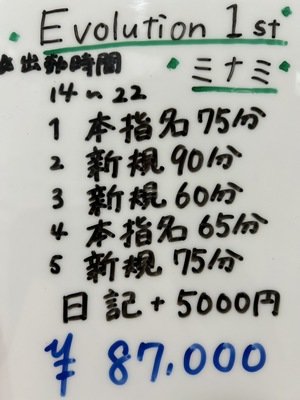 Evolution 1st
ミナミ
出勤時間
14〜22
1 本指名 75分
2 新規 90分
3 新規 60分
4 本指名 65分
5 新規 75分
日記 + 5000円
¥ 87.000